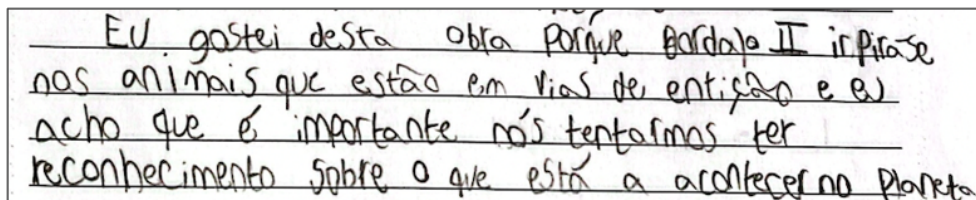 Eu gostei desta obra porque Bordalo II inpira-se
nos animais que estão em vias de entição e eu
acho que é importante nós tentarmos ter
reconhecimento sobre o que está a acontecer no planeta